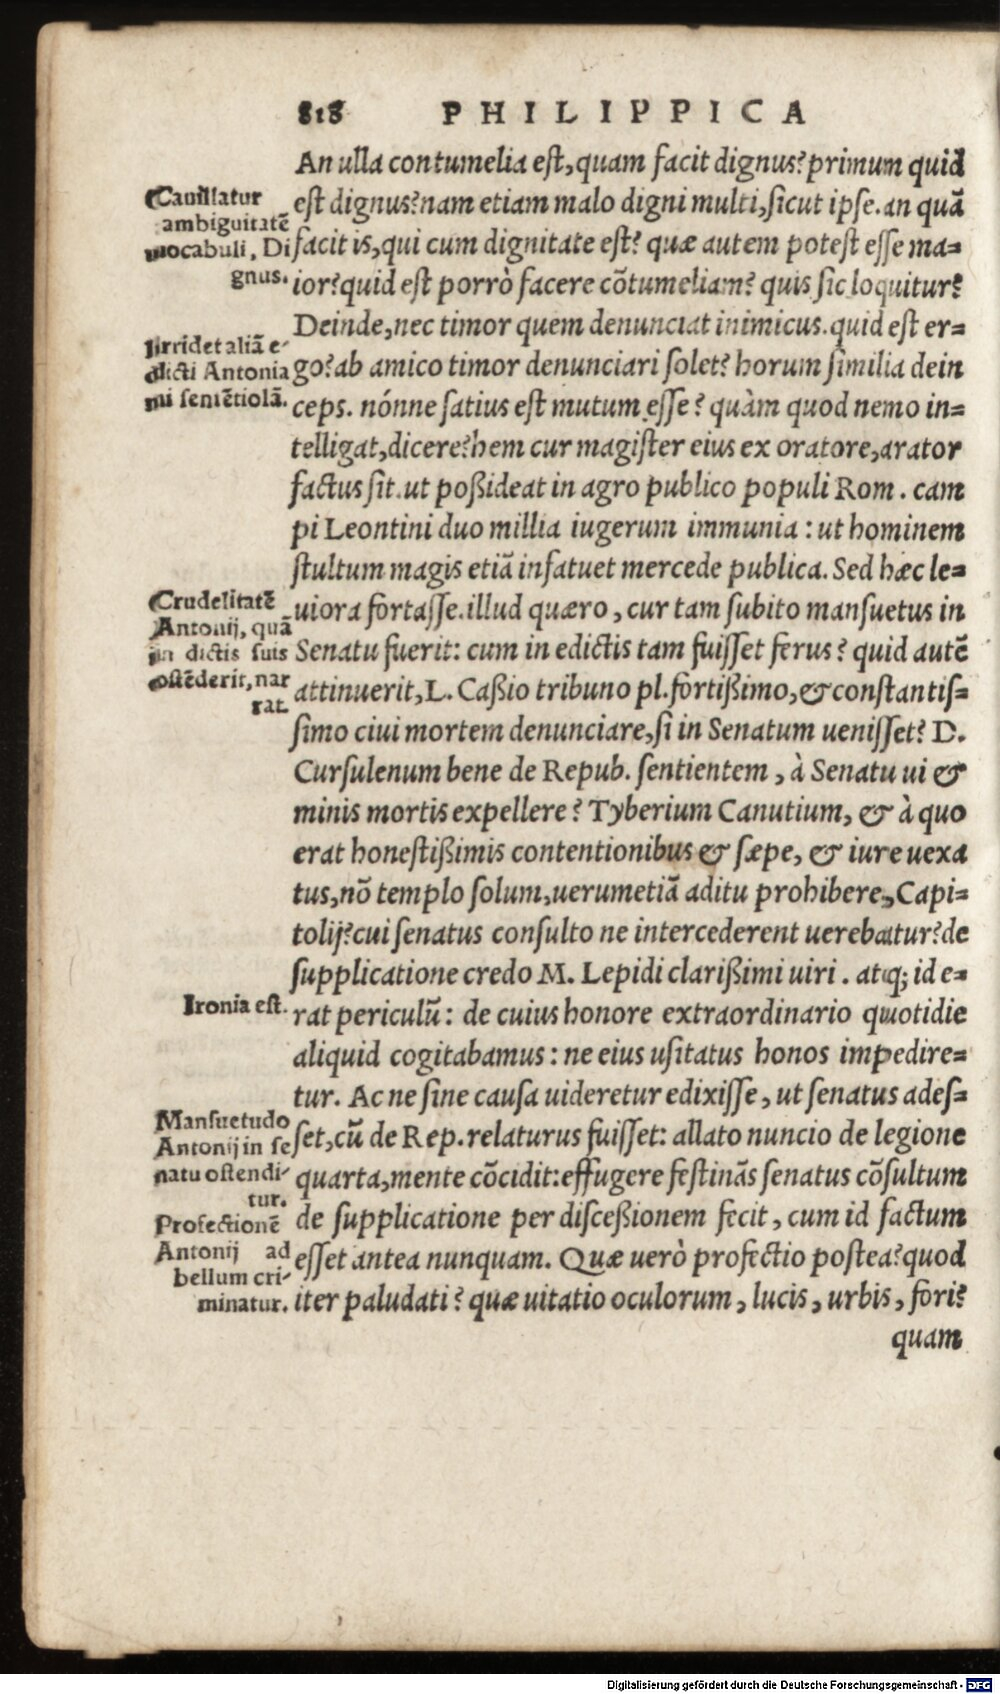 818 PHILIPPICA
An ulla contumelia est, quam facit dignus? primum quid
est dignus? nam etiam malo digni multi, sicut ipse. an quã
facit is, qui cum dignitate est? quæ autem potest esse ma=
ior? quid est porrò facere cõtumeliam? quis sic loquitur?
Deinde, nec timor quem denunciat inimicus. quid est er=
go? ab amico timor denunciari solet? horum similia dein
ceps. nónne satius est mutum esse? quàm quod nemo in=
telligat, dicere? hem cur magister eius ex oratore, arator
factus sit. ut poßideat in agro publico populi Rom. cam
pi Leontini duo millia iugerum immunia: ut hominem
stultum magis etiã infatuet mercede publica. Sed hæc le=
uiora fortasse. illud quæro, cur tam subito mansuetus in
Senatu fuerit: cum in edictis tam fuisset ferus? quid autẽ
attinuerit, L. Caßio tribuno pl. fortißimo, & constantis=
simo ciui mortem denunciare, si in Senatum uenisset? D.
Cursulenum bene de Repub. sentientem, à Senatu ui &
minis mortis expellere? Tyberium Canutium, & à quo
erat honestißimis contentionibus & sæpe, & iure uexa
tus, nõ templo solum, uerumetiã aditu prohibere, Capi=
tolij? cui senatus consulto ne intercederent uerebatur? de
supplicatione credo M. Lepidi clarißimi uiri. atq; id e=
rat periculũ: de cuius honore extraordinario quotidie
aliquid cogitabamus: ne eius usitatus honos impedire=
tur. Ac ne sine causa uideretur edixisse, ut senatus ades=
set, cũ de Rep. relaturus fuisset: allato nuncio de legione
quarta, mente cõcidit: effugere festinãs senatus cõsultum
de supplicatione per disceßionem fecit, cum id factum
esset antea nunquam. Quæ uerò profectio postea? quod
iter paludati? quæ uitatio oculorum, lucis, urbis, fori?
quam
Cauillatur
ambiguitatẽ
uocabuli, Di
gnus.
Irridet aliã e-
dicti Antonia
ni sentẽtiolã.
Crudelitatẽ
Antonij, quã
in dictis suis
ostẽderit, nar
rat.
Ironia est.
Mansuetudo
Antonij in se
natu ostendi-
tur.
Profectionẽ
Antonij ad
bellum cri-
minatur.
Digitalisierung gefördert durch die Deutsche Forschungsgemeinschaft - DFG